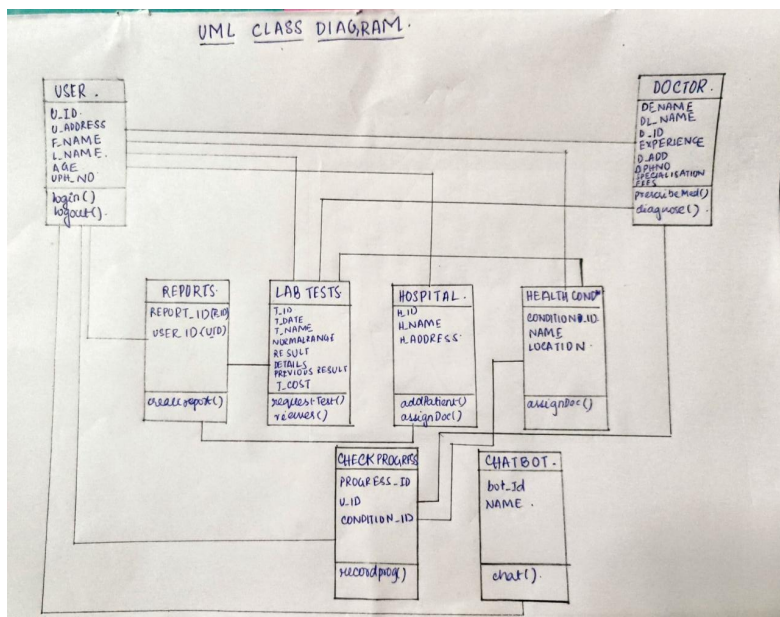 UML CLASS DIAGRAM.
USER.
U_ID.
U_ADDRESS
F_NAME
L_NAME.
AGE
UPH_NO
login()
logout().
DOCTOR.
DFNAME
DL_NAME
D_ID
EXPERIENCE
D_ADD
DPHNO
SPECIALISATION
FEES
prescribeMed()
diagnose().
REPORTS.
REPORT_ID(R_ID)
USER_ID(U_ID)
createreport()
LAB TESTS
T_ID
T_DATE
T_NAME
NORMALRANGE
RESULT
DETAILS
PREVIOUS RESULT
T_COST
requestTest()
HOSPITAL.
H_ID
H_NAME
H_ADDRESS.
addPatient()
assignDoc()
HEALTH COND
CONDITION_ID.
NAME
LOCATION.
assignDoc()
CHECKPROGRESS
PROGRESS_ID
U_ID
CONDITION_ID
recordprog()
CHATBOT.
bot_Id
NAME.
chat().